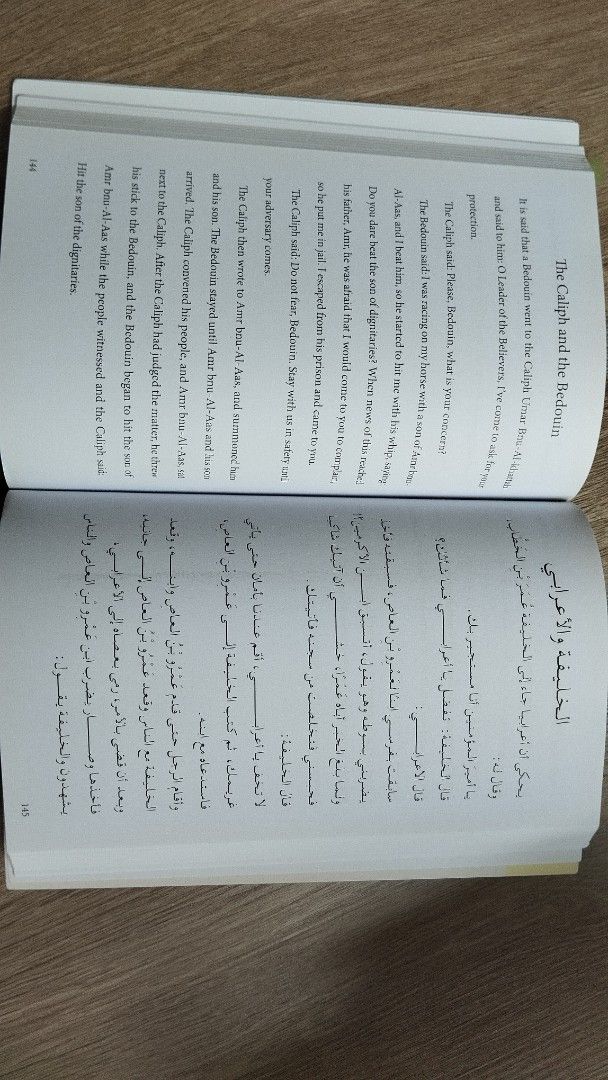 The Caliph and the Bedouin
It is said that a Bedouin went to the Caliph Umar Bnu-Al-khattab
and said to him: O Leader of the Believers, I've come to ask for your
protection.
The Caliph said: Please, Bedouin, what is your concern?
The Bedouin said: I was racing on my horse with a son of Amr bnu-
Al-Aas, and I beat him, so he started to hit me with his whip, saying
Do you dare beat the son of dignitaries? When news of this reached
his father, Amr, he was afraid that I would come to you to complain,
so he put me in jail. I escaped from his prison and came to you.
The Caliph said: Do not fear, Bedouin. Stay with us in safety until
your adversary comes.
The Caliph then wrote to Amr bnu-Al-Aas, and summoned him
and his son. The Bedouin stayed until Amr bnu-Al-Aas and his son
arrived. The Caliph convened his people, and Amr bnu-Al-Aas, sat
next to the Caliph. After the Caliph had judged the matter, he threw
his stick to the Bedouin, and the Bedouin began to hit the son of
Amr bnu-Al-Aas while the people witnessed and the Caliph said:
Hit the son of the dignitaries.
144
الخليفة والأعرابي
يحكى أن أعرابيا جاء إلى الخليفة عُمَرُ بْنِ الخَطَّاب،
وقال له:
يا أمير المؤمنين أنا مستجير بك.
قال الخليفة: تفضل يا أعرابي فما شأنك؟
قال الأعرابي:
سابقت بفرسي ابنا لعَمْرو بْن العاص، فسبقته فأخذ
يضربني بسوطه وهو يقول، أتسبق ابن الأكرمين؟!
ولما بلغ الخبر أباه عَمْرًا، خشي أن آتيك شاكيا
فحبسني فتخلصت من سجنه فأتيتك.
قال الخليفة:
لا تخف يا أعرابي، أقم عندنا بأمان حتى يأتي
غريمك، ثم كتب الخليفة إلى عَمْرو بْن العاص،
فاستدعاه مع ابنه.
وأقام الرجل حتى قدم عَمْرُو بْنُ العاص وابنه، وقعد
الخليفة مع الناس وقعد عَمْرُو بْنُ العاص إلى جانبه،
وبعد أن قضى بالأمر، رمى بعصاه إلى الأعرابي،
فأخذها وصار يضرب ابن عَمْرو بْن العاص والناس
يشهدون والخليفة يقول:
145